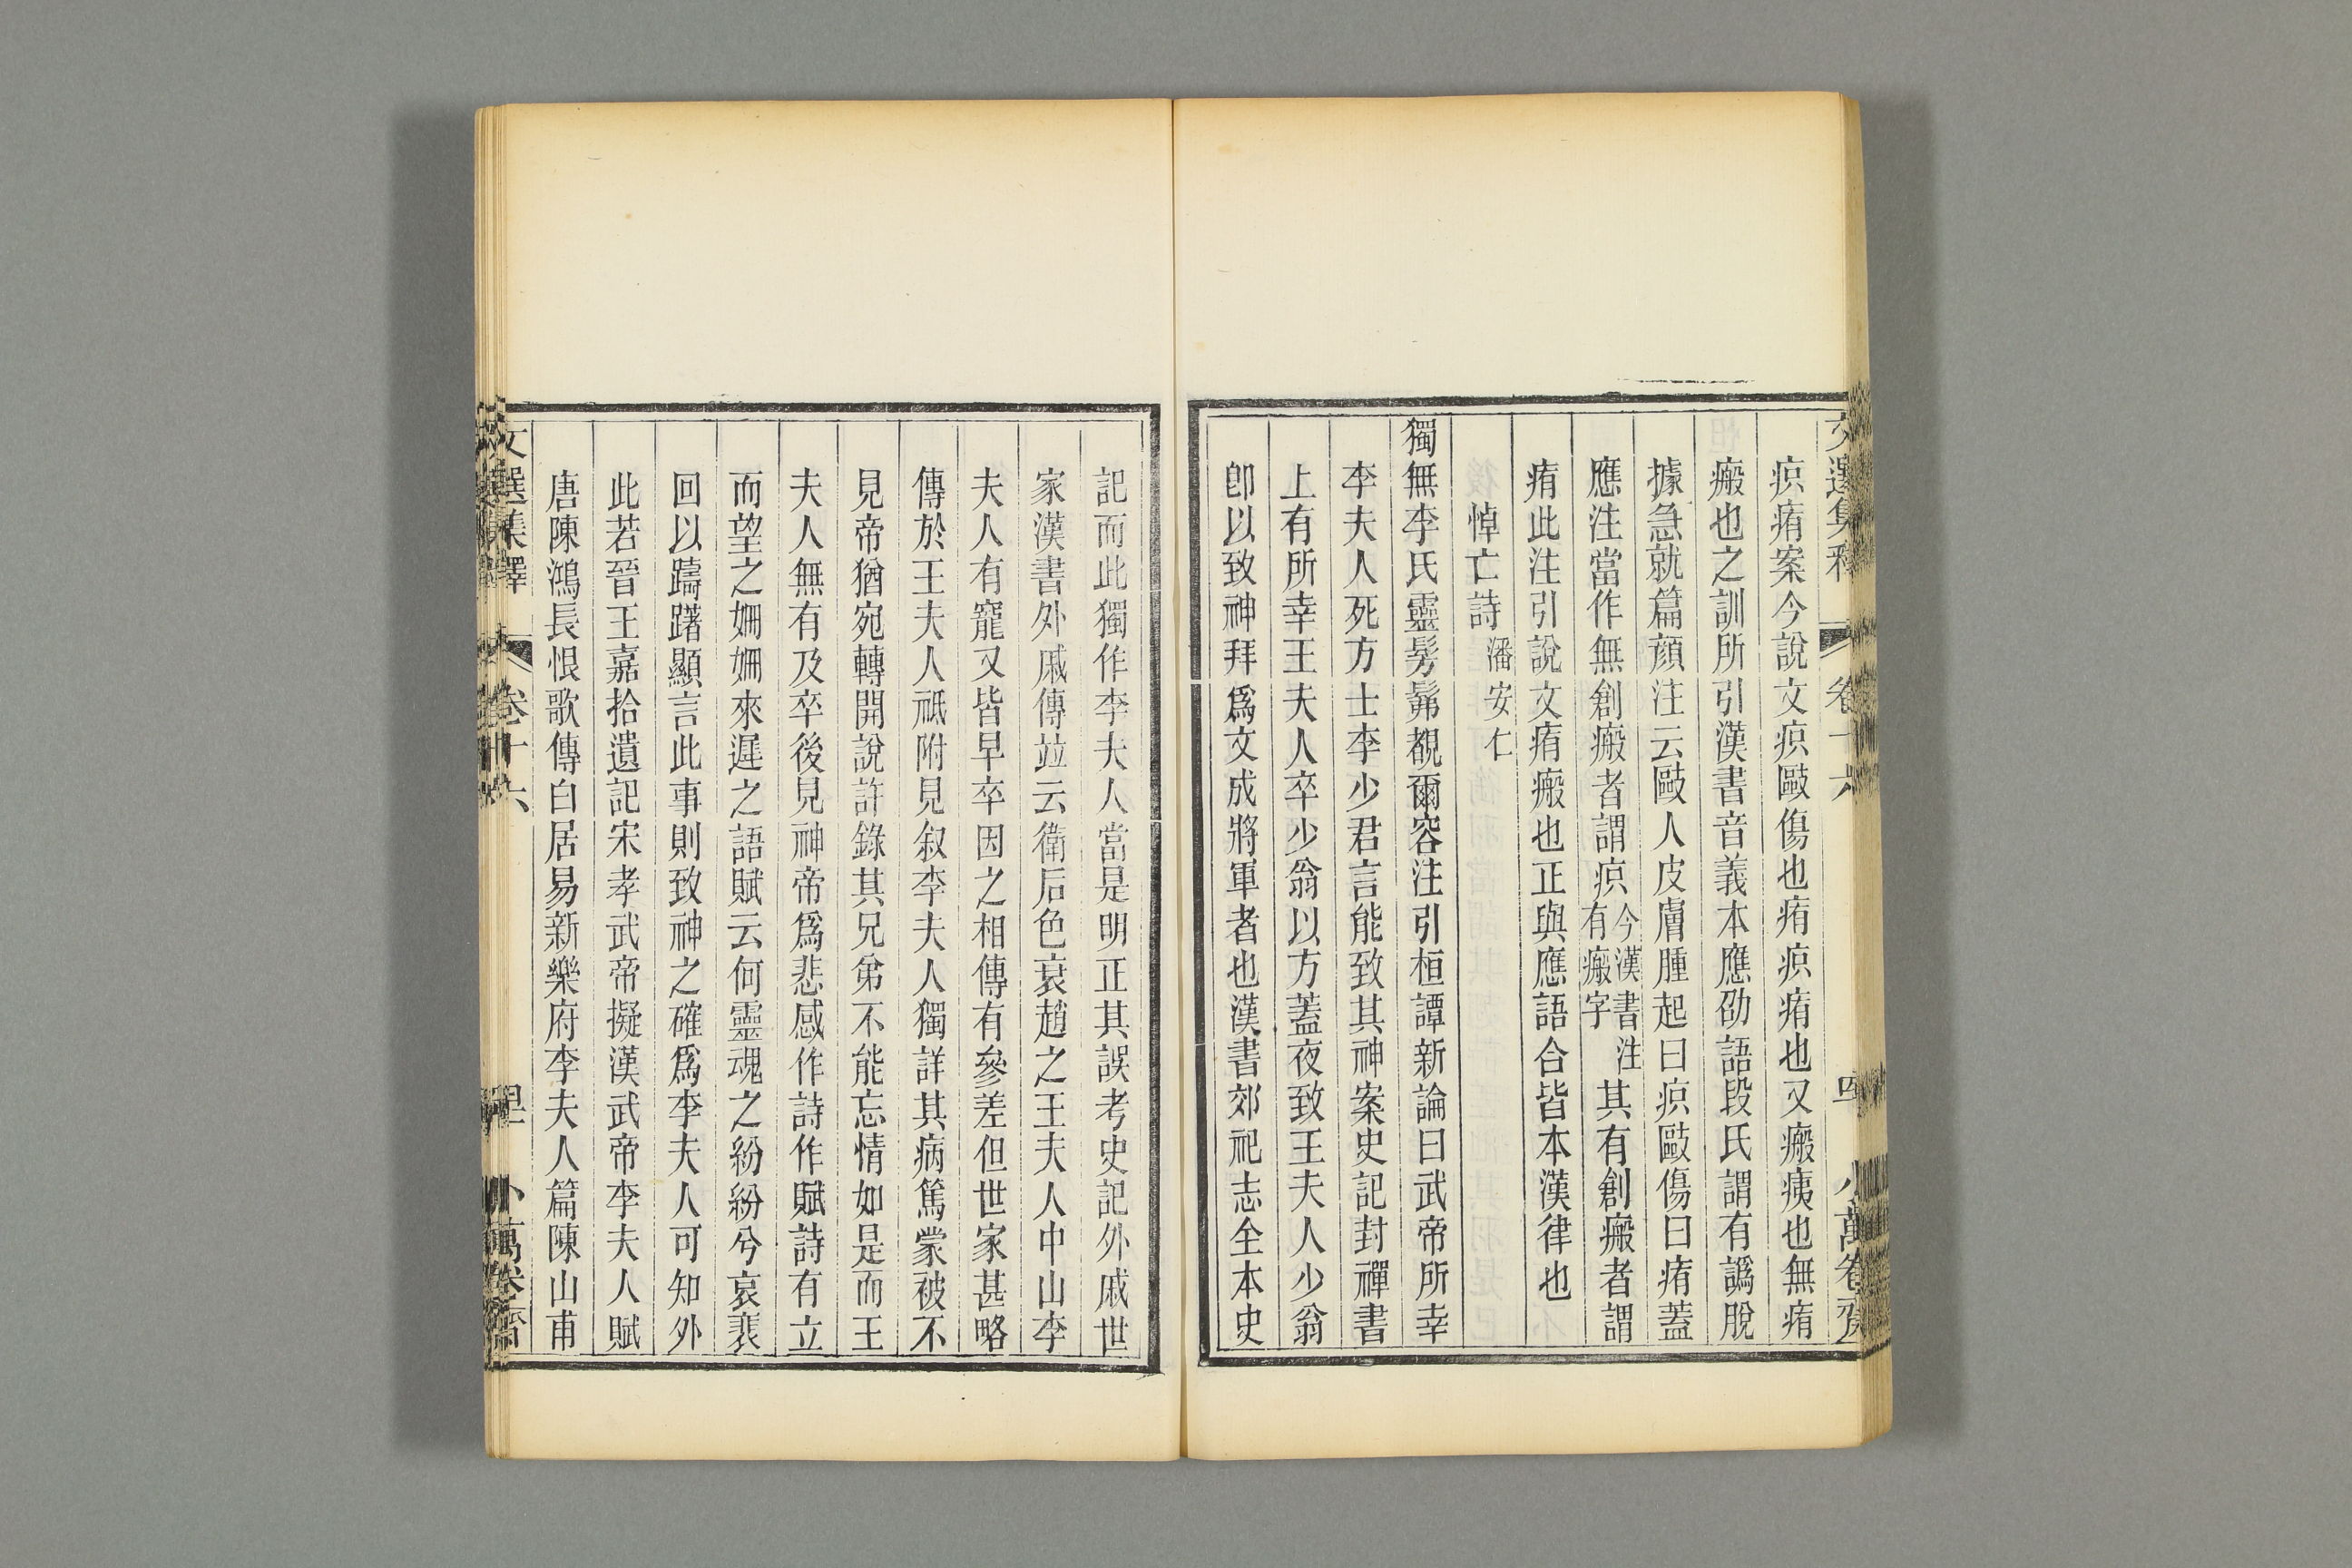 文選集釋 卷十六 四 小萬卷齋
疻痏案今說文疻毆傷也痏疻痏也又瘢痍也無痏
瘢也之訓所引漢書音義本應劭語段氏謂有譌脫
據急就篇顏注云毆人皮膚腫起曰疻毆傷曰痏蓋
應注當作無創瘢者謂疻今漢書注有瘢字其有創瘢者謂
痏此注引說文痏瘢也正與應語合皆本漢律也
悼亡詩 潘安仁
獨無李氏靈髣髴覩爾容注引桓譚新論曰武帝所幸
李夫人死方士李少君言能致其神案史記封禪書
上有所幸王夫人卒少翁以方蓋夜致王夫人少翁
卽以致神拜爲文成將軍者也漢書郊祀志全本史
記而此獨作李夫人當是明正其誤考史記外戚世
家漢書外戚傳竝云衛后色衰趙之王夫人中山李
夫人有寵又皆早卒因之相傳有參差但世家甚略
傳於王夫人祗附見叙李夫人獨詳其病篤蒙被不
見帝猶宛轉開說許錄其兄弟不能忘情如是而王
夫人無有及卒後見神帝爲悲感作詩作賦詩有立
而望之姍姍來遲之語賦云何靈魂之紛紛兮哀裴
回以躊躇顯言此事則致神之確爲李夫人可知外
此若晉王嘉拾遺記宋孝武帝擬漢武帝李夫人賦
唐陳鴻長恨歌傳白居易新樂府李夫人篇陳山甫
文選集釋 卷十六 小萬卷齋